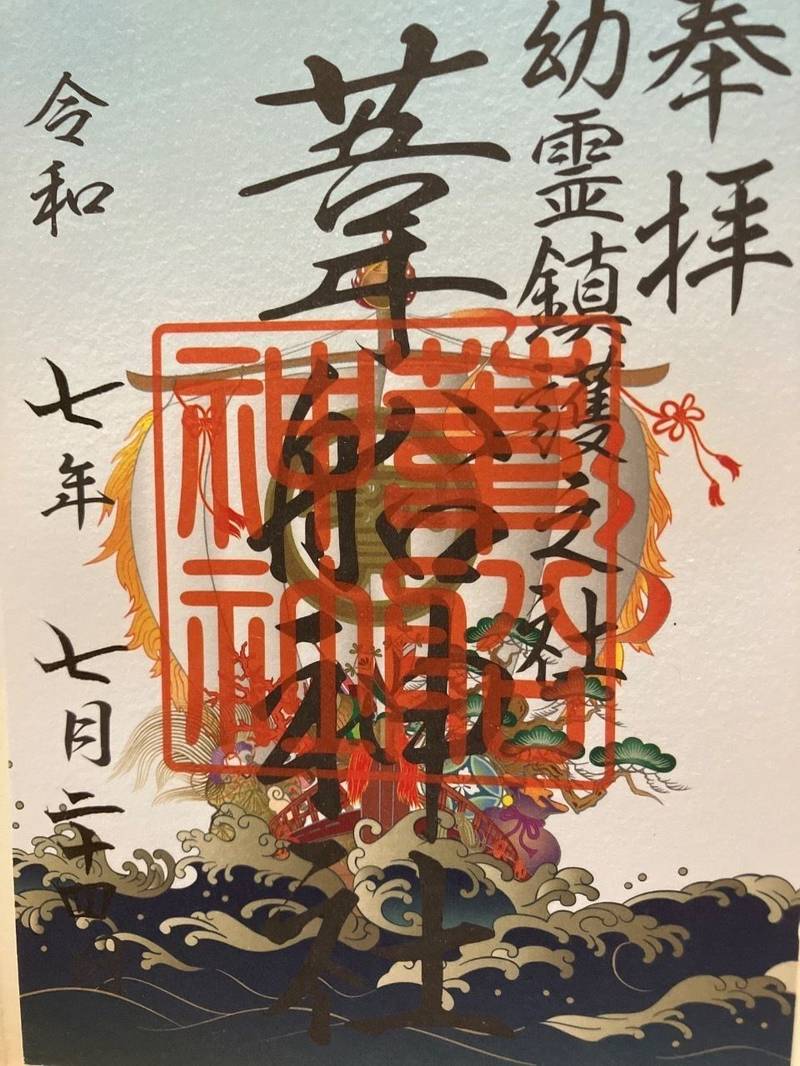 奉拝
幼霊鎮護之社
葦船神社
葦船神社
令和七年七月二十四